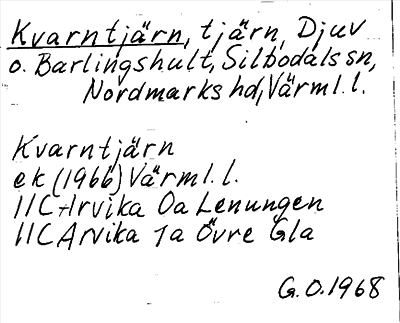 Kvarntjärn, tjärn, Djuv
o. Barlingshult, Silbodals sn,
Nordmarks hd, Värml. l.
Kvarntjärn
ek (1966) Värml. l.
11C Arvika 0a Lenungen
11C Arvika 1a Övre Gla
G. O. 1968